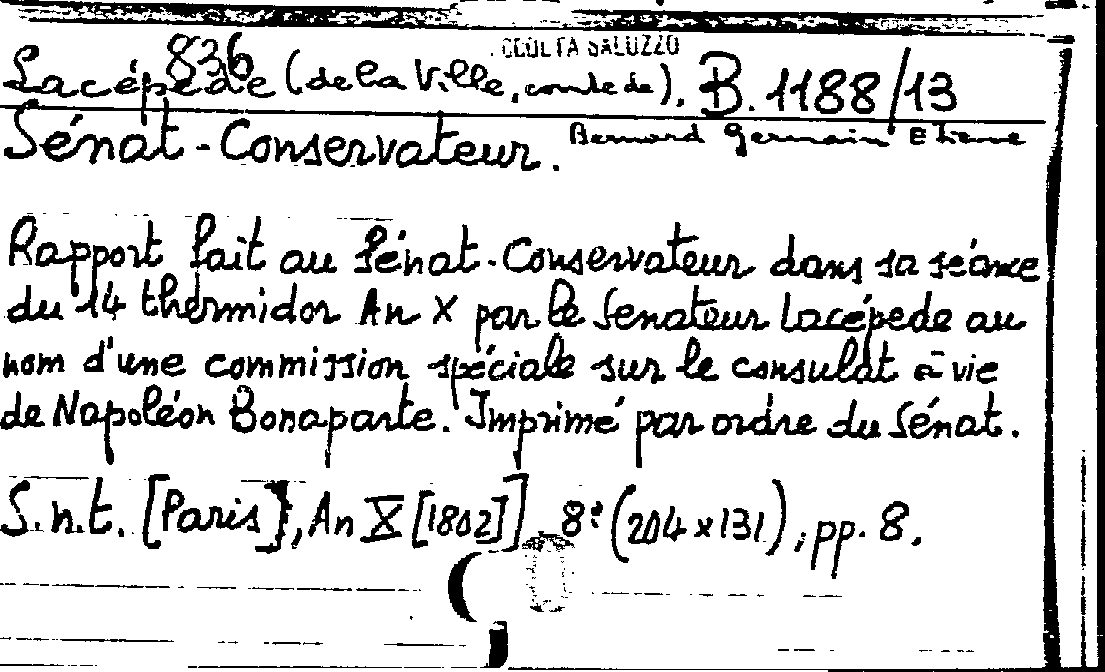 836
RACCOLTA SALUZZO
Lacépède (de la Ville, comte de). B. 1188/13
Bernard Germain Etienne
Sénat-Conservateur.
Rapport fait au Sénat-Conservateur dans sa séance
du 14 thermidor An X par le Senateur Lacépede au
nom d'une commission spéciale sur le consulat à vie
de Napoléon Bonaparte. Imprimé par ordre du Sénat.
S.n.t. [Paris], An X [1802]] 8° (204 x 131), pp. 8.